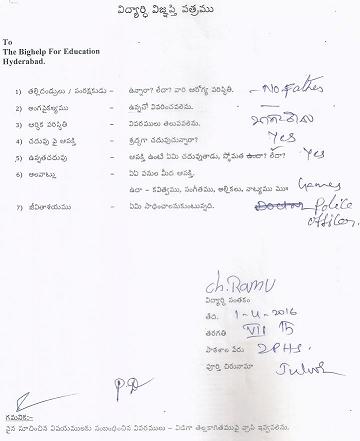 విద్యార్థి విజ్ఞప్తి పత్రము
To
The Bighelp For Education
Hyderabad.
1) తల్లిదండ్రులు / సంరక్షకుడు - ఉన్నారా? లేదా? వారి ఆరోగ్య పరిస్థితి. - No Father
2) అంగవైకల్యము - ఉన్నచో వివరించవలెను. —
3) ఆర్థిక పరిస్థితి - వివరములు తెలుపవలెను.
4) చదువు పై ఆసక్తి - శ్రద్ధగా చదువుచున్నారా? Yes
5) ఉన్నతచదువు - ఆసక్తి ఉంటే ఏమి చదువుతాడు, స్థోమత ఉందా? లేదా? Yes
6) అలవాట్లు - ఏఏ పనుల మీద ఆసక్తి.
ఉదా - కవిత్వము, సంగీతము, అల్లికలు, నాట్యము Games
7) జీవితాశయము - ఏమి సాధించాలనుకుంటున్నది. Doctor Police
officer.
ch. Ramu
విద్యార్థి సంతకం
తేది. 1-4-2016
తరగతి VII
పాఠశాల పేరు ZPHS.
పూర్తి చిరునామా
గమనిక:-
పైన సూచించిన విషయములకు సంబంధించిన వివరములు - విడిగా తెల్లకాగితముపై వ్రాసి ఇవ్వవలెను.